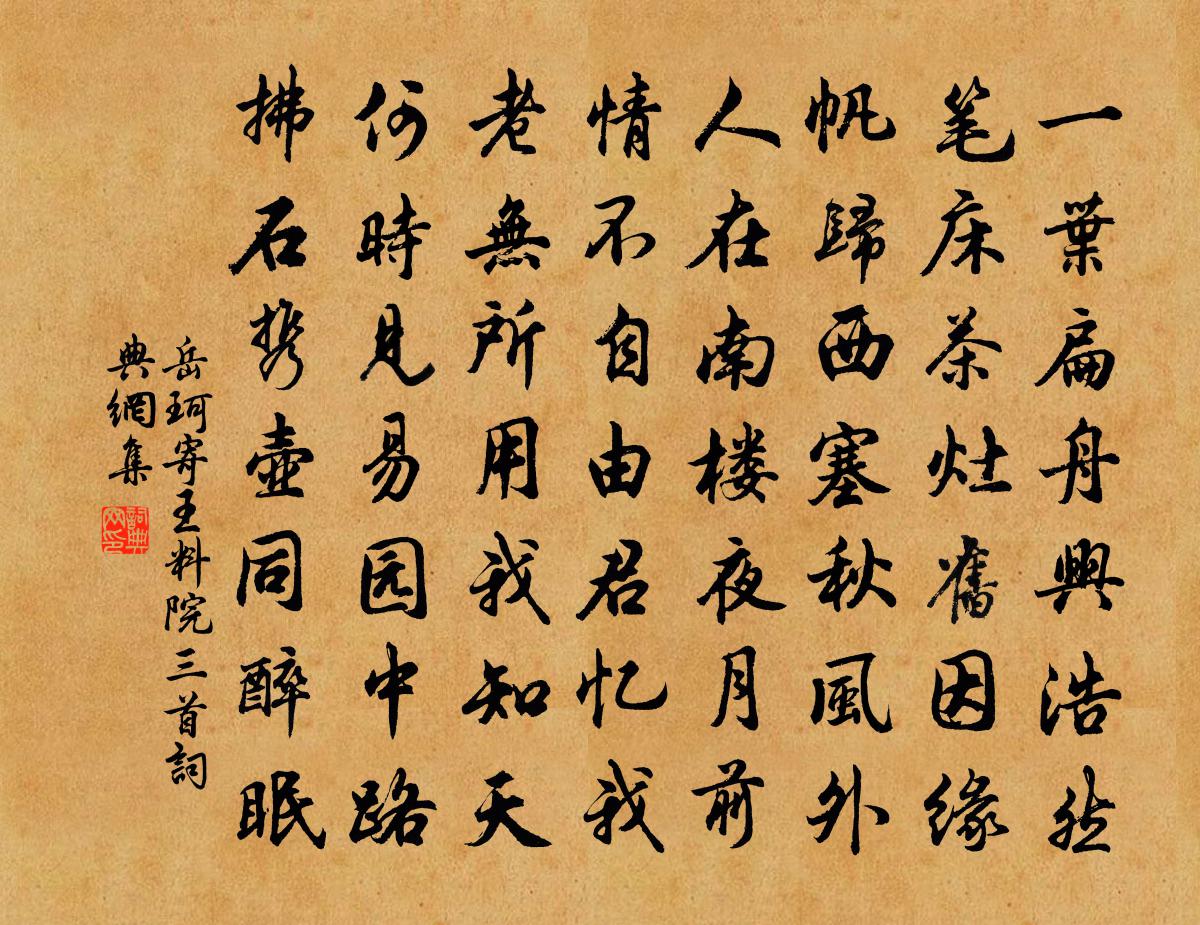 一葉扁舟興浩然
笔床茶灶舊因緣
帆歸西塞秋風外
人在南楼夜月前
情不自由君忆我
老無所用我知天
何時見易园中路
拂石携壺同醉眠
岳珂寄王料院三首詞
典網集
詞典网印